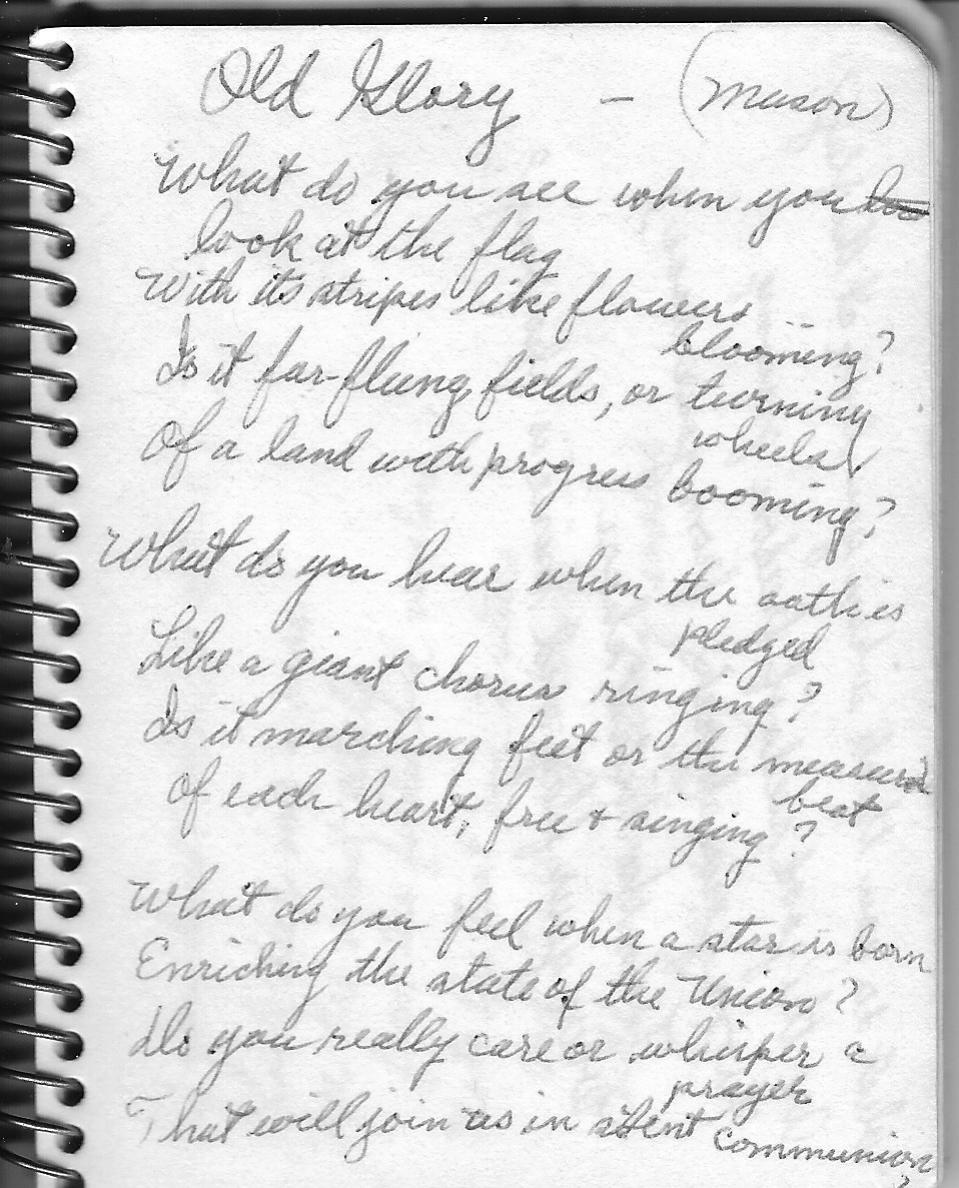 Old Glory - (Mason)
What do you see when you loo
look at the flag
With its stripes like flowers
blooming?
Is it far-flung fields, or turning
wheels
Of a land with progress booming?
What do you hear when the oath is
pledged
Like a giant chorus ringing?
Is it marching feet or the measured
beat
Of each heart, free & singing?
What do you feel when a star is born
Enriching the state of the Union?
Do you really care or whisper a
prayer
That will join us in silent communion
?